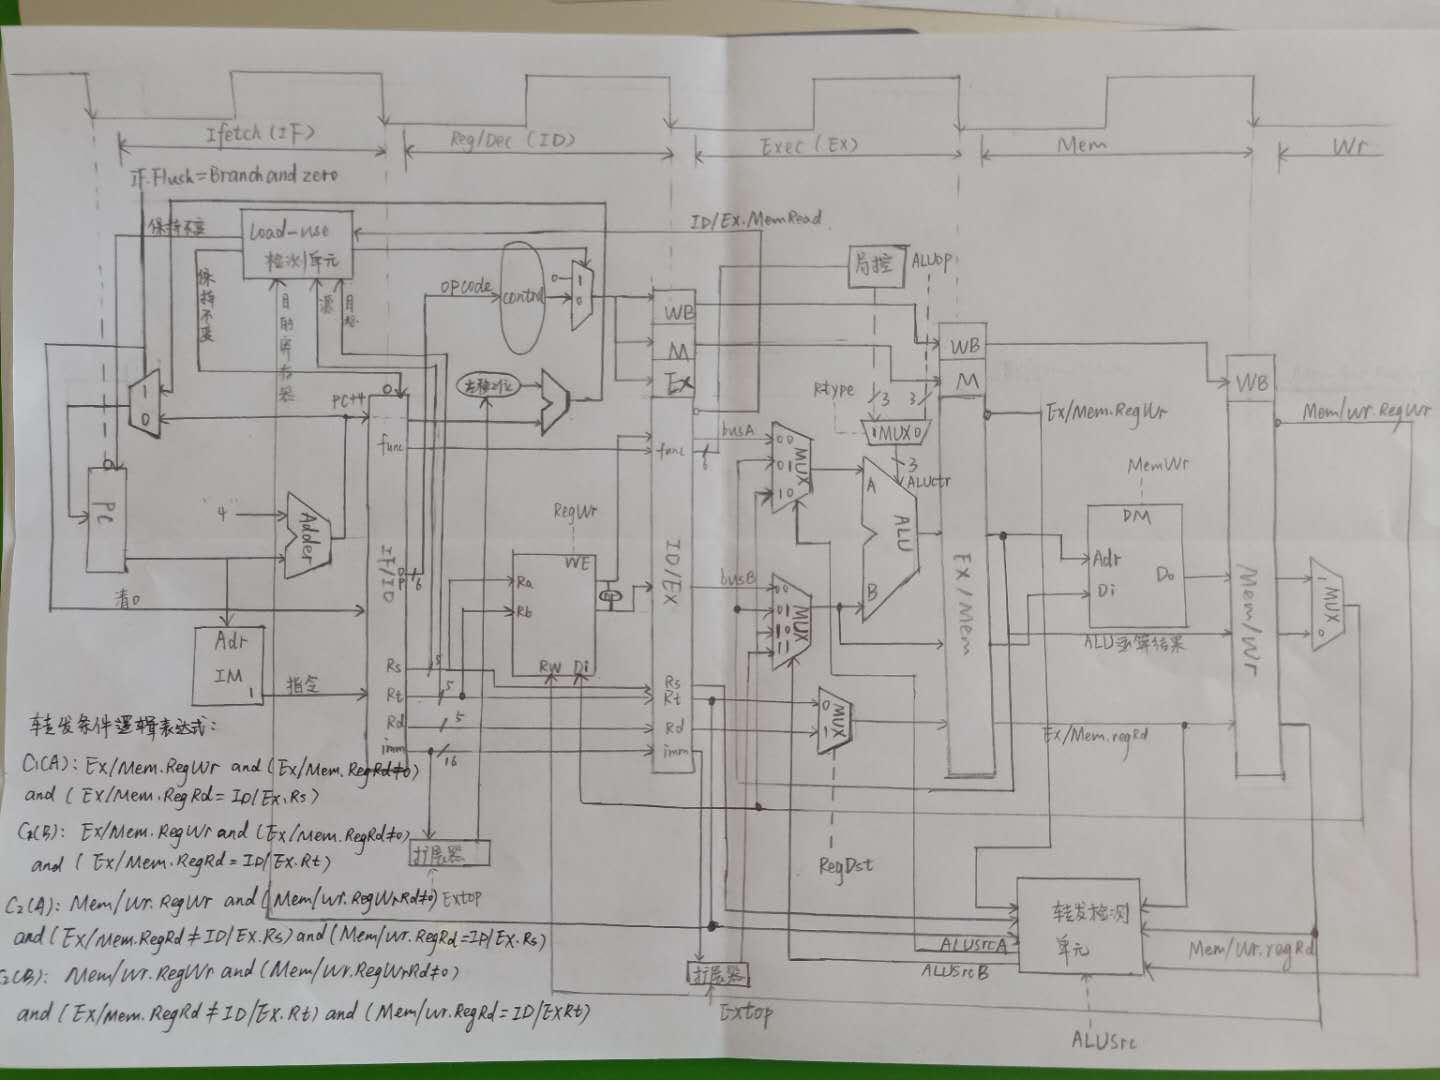 Ifetch (IF)
Reg/Dec (ID)
Exec (EX)
Mem
Wr
IF.Flush=Branch and zero
保持不变
Load-use
检测单元
ID/Ex.MemRead
保持不变
目的寄存器
源
目标
opcode
control
0
1
0
局控
ALUop
WB
M
Ex
WB
M
WB
1
0
PC+4
左移2位
Rtype
3
3
1 MUX 0
3
ALUctr
Ex/Mem.RegWr
Mem/Wr.RegWr
func
func
6
busA
00
01
10
MUX
A
ALU
B
MemWr
DM
Adr
Di
Do
PC
4
Adder
IF/ID
op
6
RegWr
WE
Ra
Rb
RW
Di
ID/Ex
busB
00
01
10
11
MUX
Ex/Mem
Mem/Wr
1
MUX
0
ALU运算结果
清0
Adr
IM
指令
Rs
Rt
Rd
imm
5
5
5
16
Rs
Rt
Rd
imm
0
1
MUX
Ex/Mem.regRd
RegDst
扩展器
Extop
扩展器
Extop
转发检测
单元
ALUSrcA
ALUSrcB
Mem/Wr.regRd
ALUSrc
转发条件逻辑表达式:
C₁(A): Ex/Mem.RegWr and (Ex/Mem.RegRd≠0)
and ( Ex/Mem.RegRd= ID/Ex.Rs)
C₁(B): Ex/Mem.RegWr and (Ex/Mem.RegRd≠0)
and ( Ex/Mem.RegRd = ID/Ex.Rt)
C₂(A): Mem/Wr.RegWr and (Mem/Wr.RegWrRd≠0)
and (Ex/Mem.RegRd ≠ ID/Ex.Rs) and (Mem/Wr.RegRd=ID/Ex.Rs)
C₂(B): Mem/Wr.RegWr and (Mem/Wr.RegWrRd≠0)
and (Ex/Mem.RegRd ≠ ID/Ex.Rt) and (Mem/Wr.RegRd = ID/ExRt)